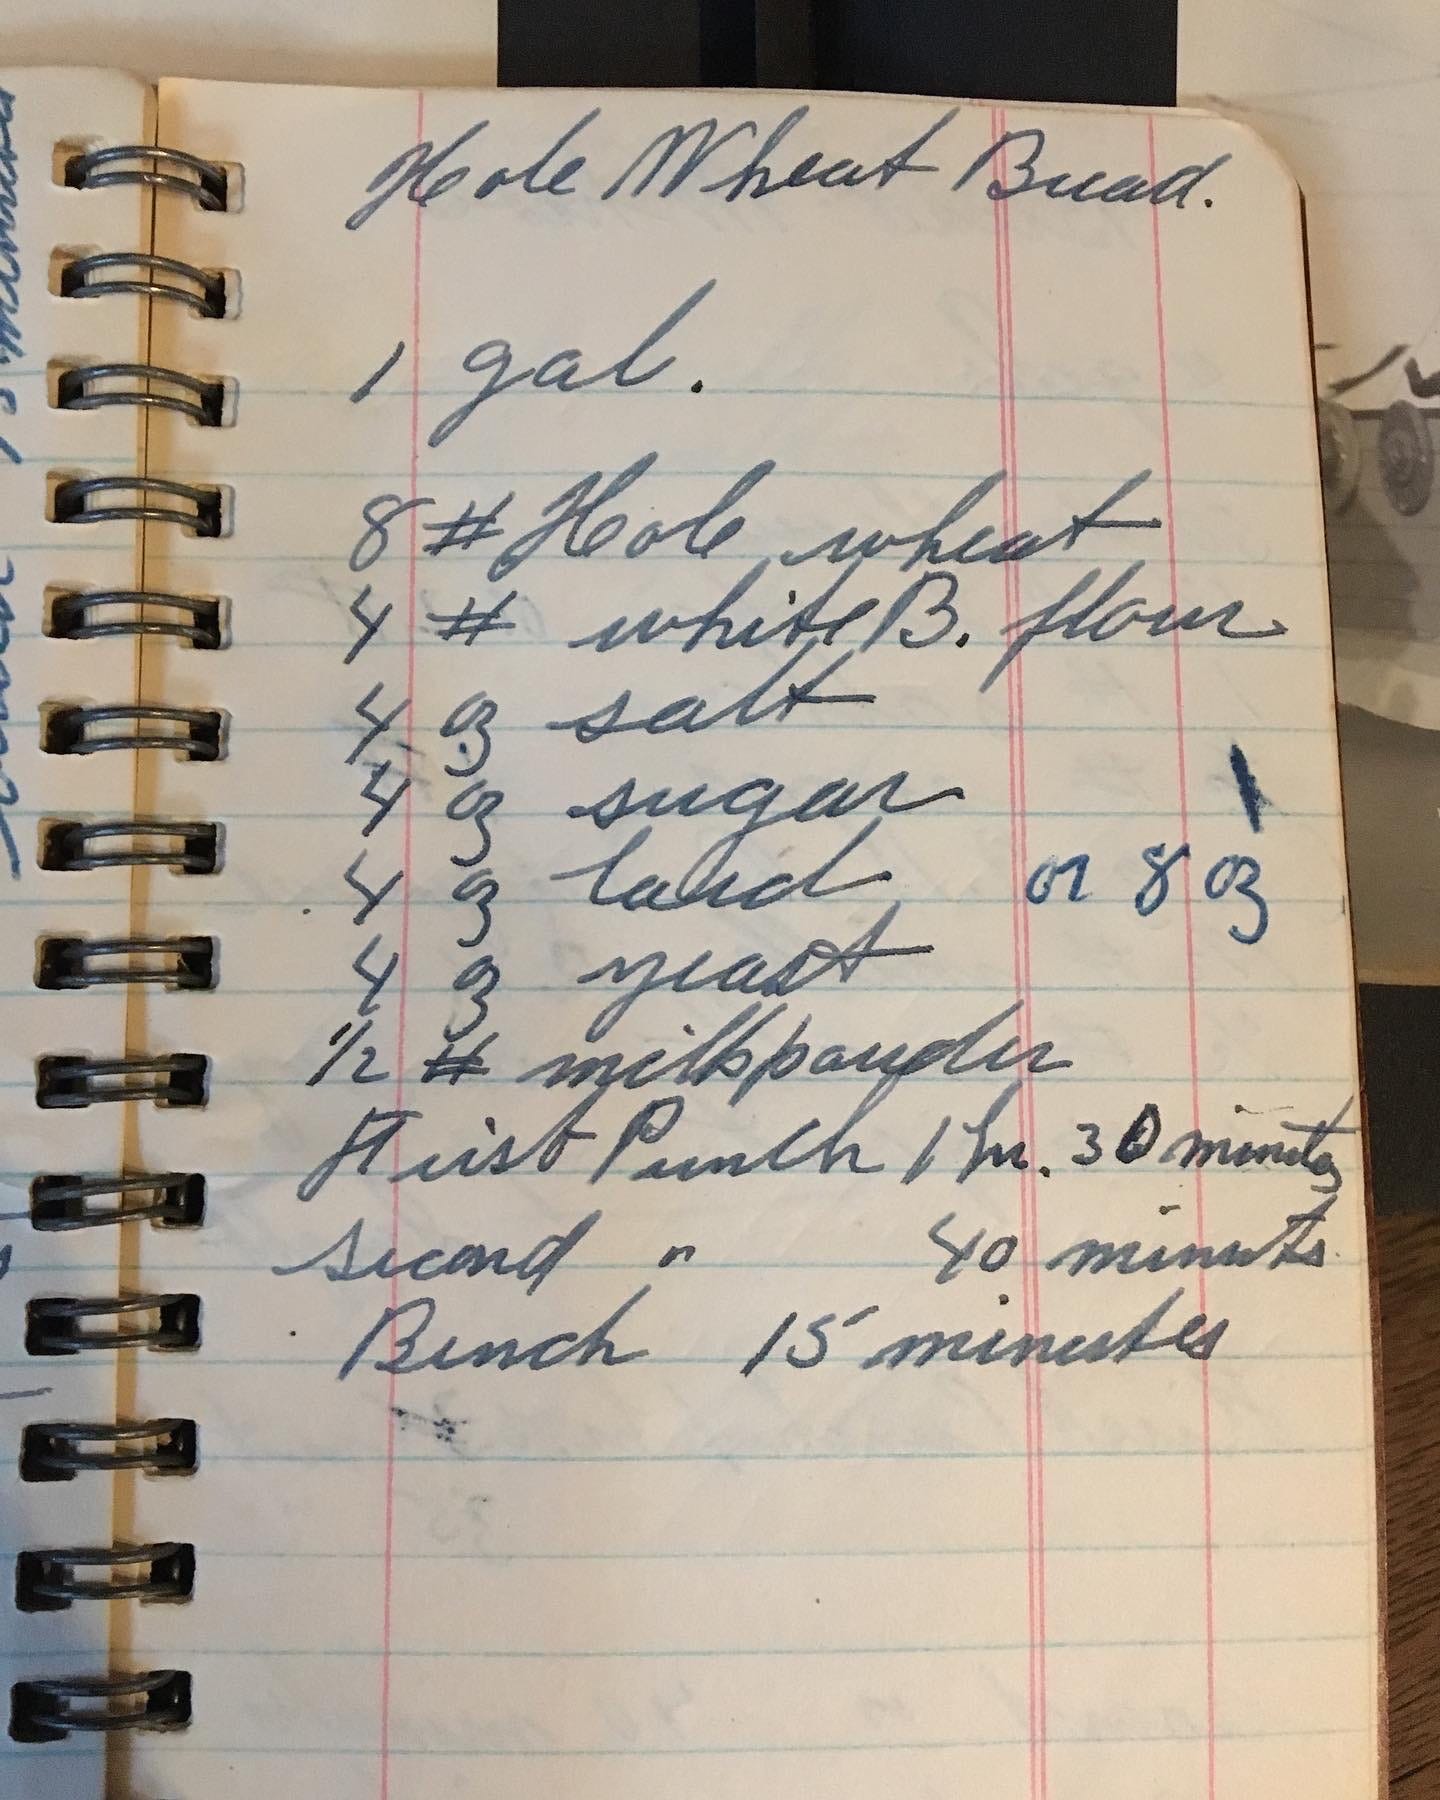 Hole Wheat Bread.
1 gal.
8 # Hole wheat
4 # white B. flour
4 oz salt
4 oz sugar
4 oz lard or 8 oz
4 oz yeast
1/2 # milkpouder
First Punch 1 hr. 30 minutes
second " 40 minuts
Bench 15 minutes